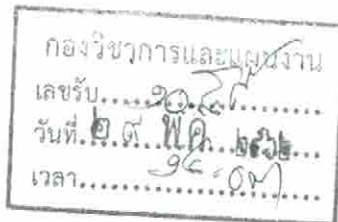 กองวิชาการและแผนงาน
เลขรับ
วันที่ ๒๙ พค ๒๕๖๒
เวลา